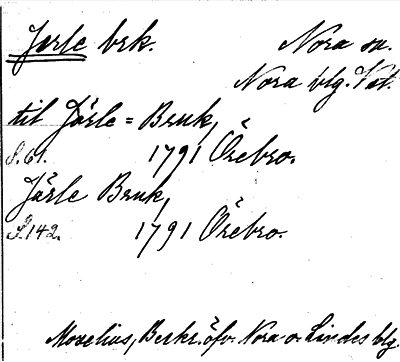 Jerle brk. Nora sn.
Nora blg. Vst.
til Järle=Bruk,
S.61. 1791 Örebro.
Järle Bruk,
S.142. 1791 Örebro.
Moxelius, Beskr. öfv. Nora o. Lindes blg.